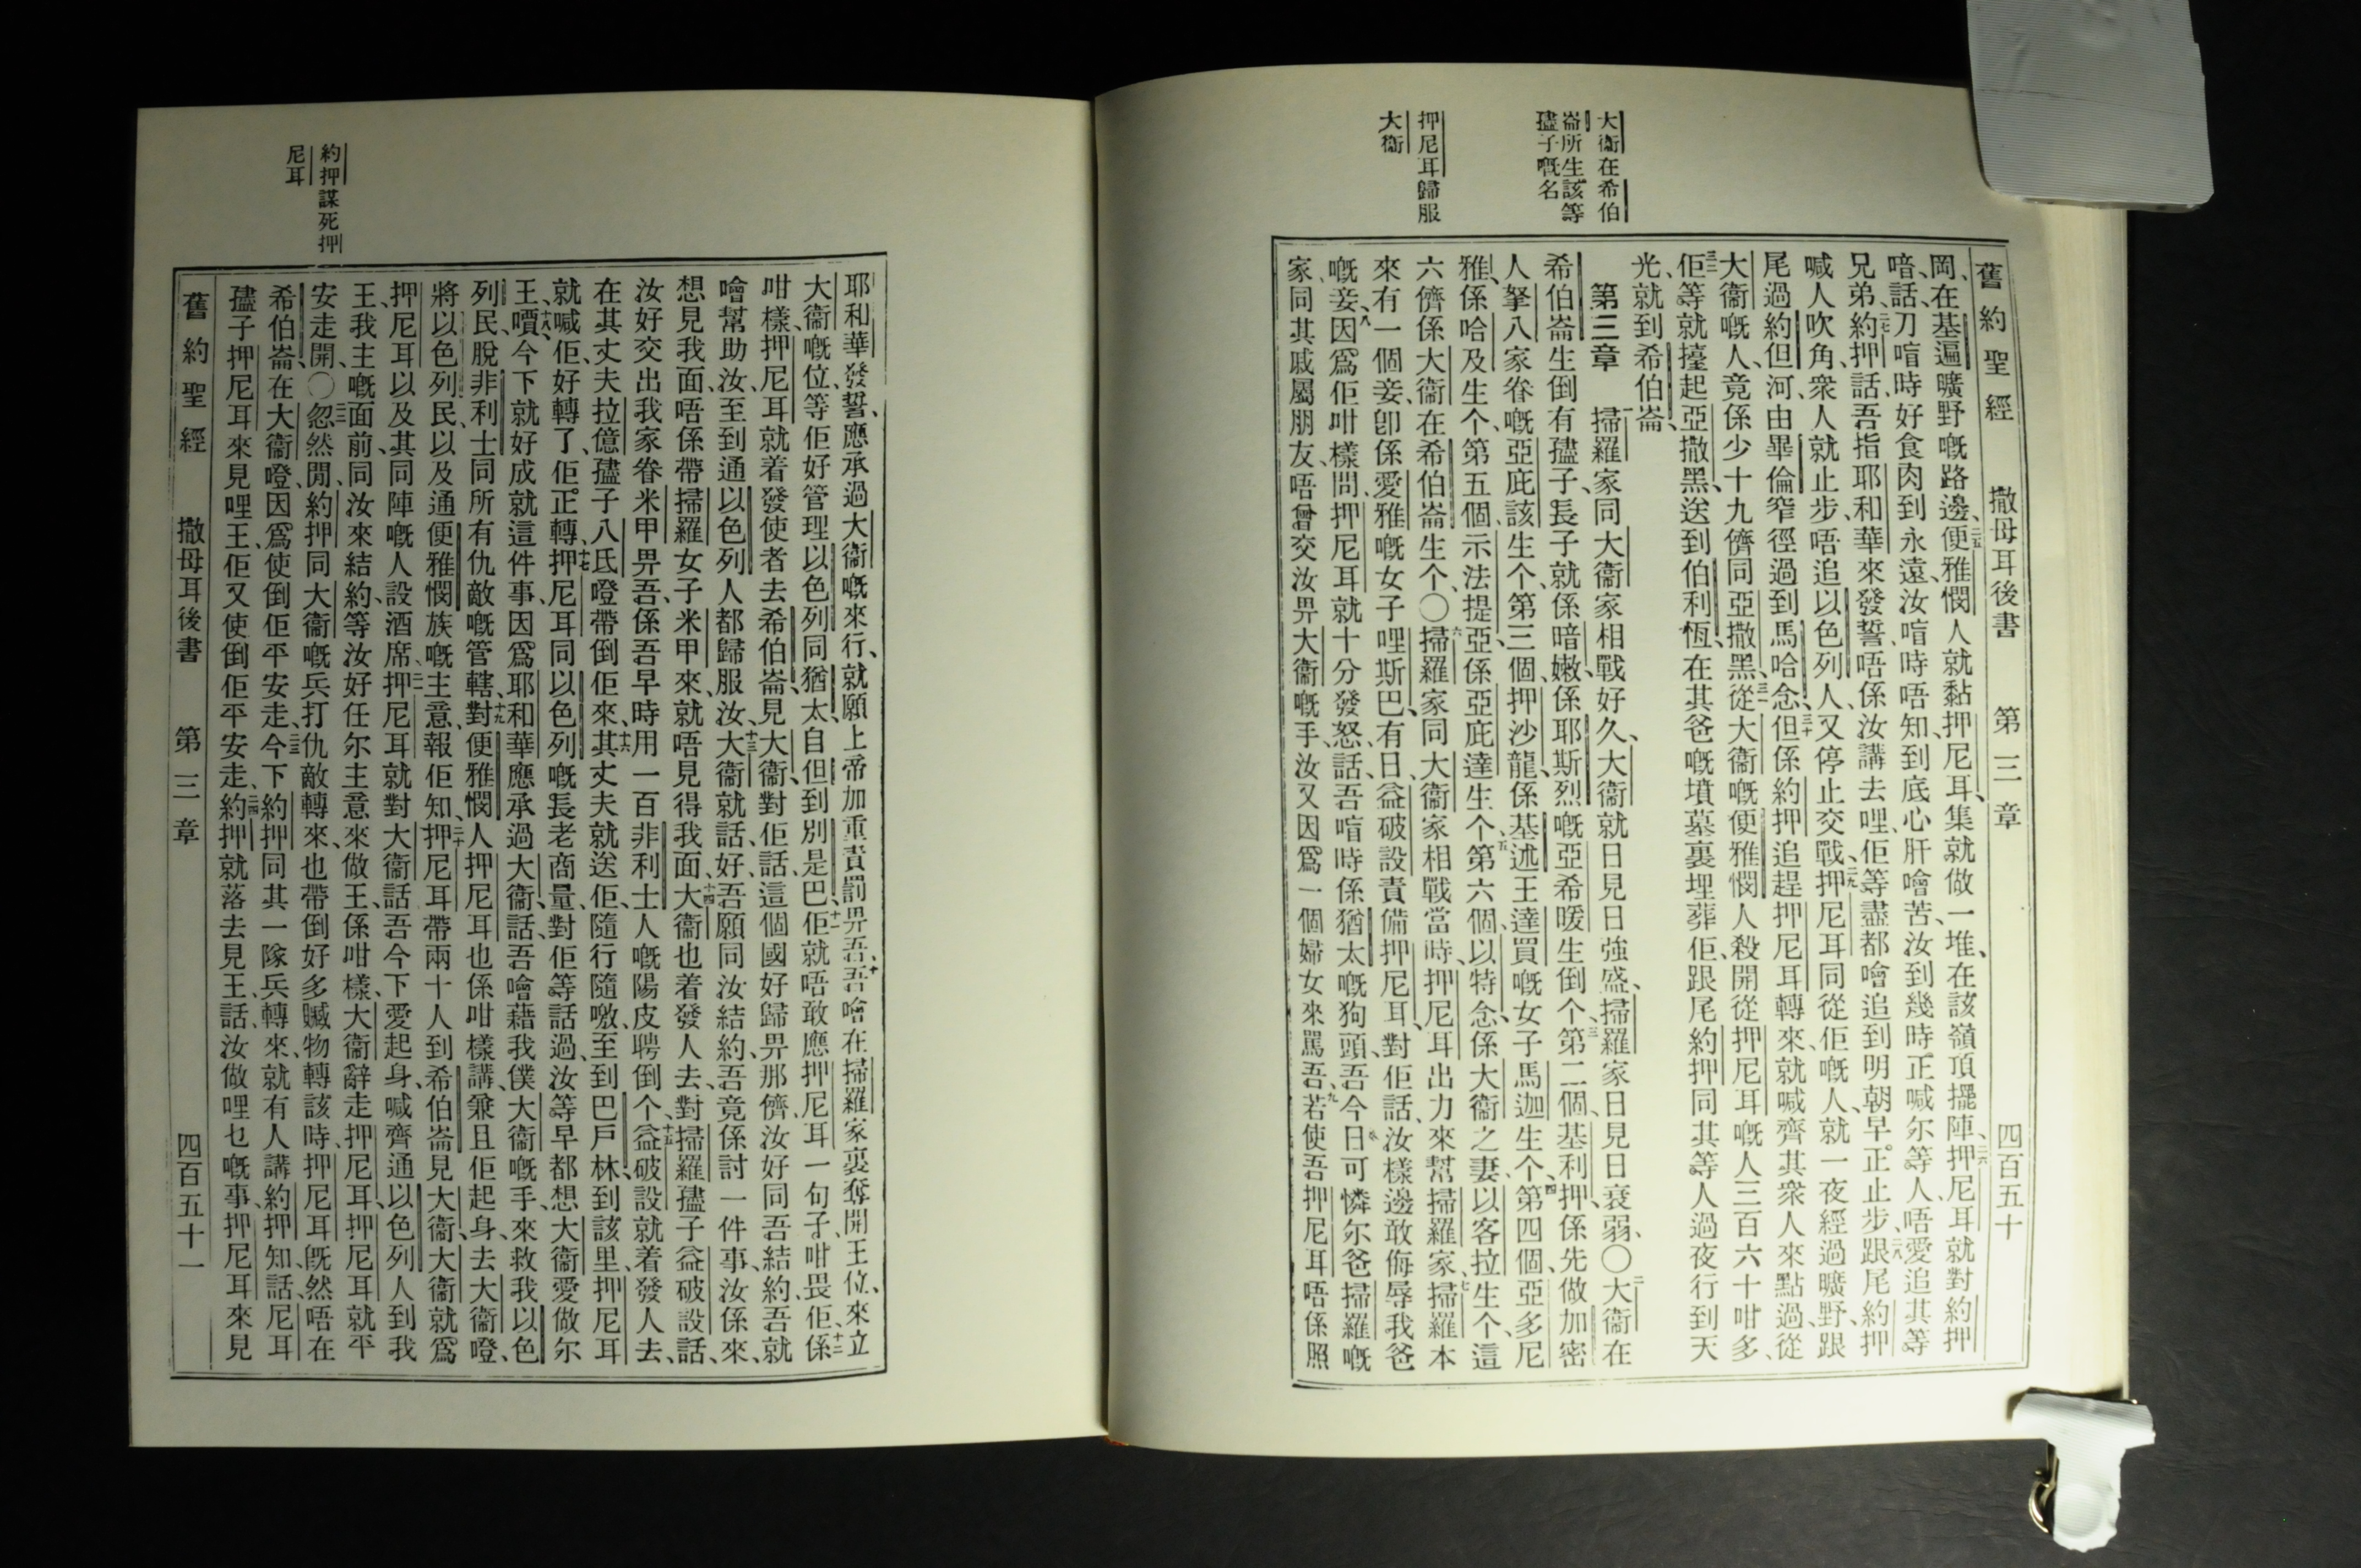 舊約聖經 撒母耳後書 第三章 四百五十
大衞在希伯
崙所生該等
㜽子嘅名
押尼耳歸服
大衞
岡、在基遍曠野嘅路邊、二五便雅憫人就黏押尼耳、集就做一堆、在該嶺頂擺陣、二六押尼耳就對約押
喑、話、刀喑時好食肉到永遠、汝喑時唔知、到底心肝噲苦、汝到幾時正喊尔等人、唔愛追其等
兄弟、二七約押話、吾指耶和華來發誓、唔係汝講去哩、佢等盡都噲追到明朝早。正止步、二八跟尾約押
喊人吹角、衆人就止步、唔追以色列人、又停止交戰、二九押尼耳同從佢嘅人、就一夜經過曠野、跟
尾過約但河、由畢倫窄徑過到馬哈念、三十但係約押追趕押尼耳轉來、就喊齊其衆人來點過、從
大衞嘅人、竟係少十九儕同亞撒黑、三一從大衞嘅便雅憫人殺開從押尼耳嘅人三百六十咁多、
三二佢等就擡起亞撒黑、送到伯利恆、在其爸嘅墳墓裏埋葬佢、跟尾約押同其等人過夜行到天
光、就到希伯崙、
第三章 一掃羅家同大衞家相戰好久、大衞就日見日強盛、掃羅家日見日衰弱、〇二大衞在
希伯崙生倒有㜽子、長子就係暗嫩、係耶斯烈嘅亞希暖生倒个、三第二個、基利押、係先做加密
人拏八家眷嘅亞庇該生个、第三個、押沙龍、係基述王達買嘅女子馬迦生个、四第四個、亞多尼
雅、係哈及生个、第五個、示法提亞、係亞庇達生个、五第六個、以特念、係大衞之妻、以客拉生个、這
六儕係大衞在希伯崙生个、〇六掃羅家同大衞家相戰當時、押尼耳出力來幫掃羅家、七掃羅本
來有一個妾、卽係愛雅嘅女子哩斯巴、有日、益破設責備押尼耳、對佢話、汝樣邊敢侮辱我爸
嘅妾、八因爲佢咁樣問、押尼耳就十分發怒、話、吾喑時係猶太嘅狗頭、吾今日可憐尔爸掃羅嘅
家、同其戚屬朋友、唔曾交汝畀大衞嘅手、汝又因爲一個婦女來罵吾、九若使吾押尼耳唔係照
耶和華發誓、應承過大衞嘅來行、就願上帝加重責罰畀吾、十吾噲在掃羅家裏奪開王位、來立
大衞嘅位、等佢好管理以色列同猶太、自但到別是巴、十一佢就唔敢應押尼耳一句子、咁畏佢、十二係
咁樣、押尼耳就着發使者去希伯崙、見大衞、對佢話、這個國好歸畀那儕、汝好同吾結約、吾就
噲幫助汝、至到通以色列人都歸服汝、十三大衞就話、好、吾願同汝結約、吾竟係討一件事、汝係來
想見我面、唔係帶掃羅女子米甲來、就唔見得我面、十四大衞也着發人去、對掃羅㜽子益破設話、
汝好交出我家眷米甲畀吾、係吾早時用一百非利士人嘅陽皮聘倒个、十五益破設就着發人去、
在其丈夫拉億㜽子八氐噔帶倒佢來、十六其丈夫就送佢、隨行隨噭、至到巴戶林、到該里、押尼耳
就喊佢、好轉了、佢正轉、十七押尼耳同以色列嘅長老商量、對佢等話過、汝等早都想大衞愛做尔
王、十八嘪、今下就好成就這件事、因爲耶和華應承過大衞、話、吾噲藉我僕大衞嘅手、來救我以色
列民、脫非利士同所有仇敵嘅管轄、十九對便雅憫人押尼耳也係咁樣講、兼且佢起身、去大衞噔、
將以色列民、以及通便雅憫族嘅主意、報佢知、二十押尼耳帶兩十人到希伯崙見大衞、大衞就爲
押尼耳以及其同陣嘅人設酒席、二一押尼耳就對大衞話、吾今下愛起身、喊齊通以色列人到我
王、我主嘅面前、同汝來結約、等汝好任尔主意來做王、係咁樣、大衞辭走押尼耳、押尼耳就平
安走開、〇二二忽然間、約押同大衞嘅兵打仇敵轉來、也帶倒好多贓物轉、該時、押尼耳旣然唔在
希伯崙在大衞噔、因爲使倒佢平安走、二三今下約押同其一隊兵轉來、就有人講約押知、話、尼耳
㜽子押尼耳來見哩王、佢又使倒佢平安走、二四約押就落去見王、話、汝做哩乜嘅事、押尼耳來見
約押謀死押
尼耳
舊約聖經 撒母耳後書 第三章 四百五十一